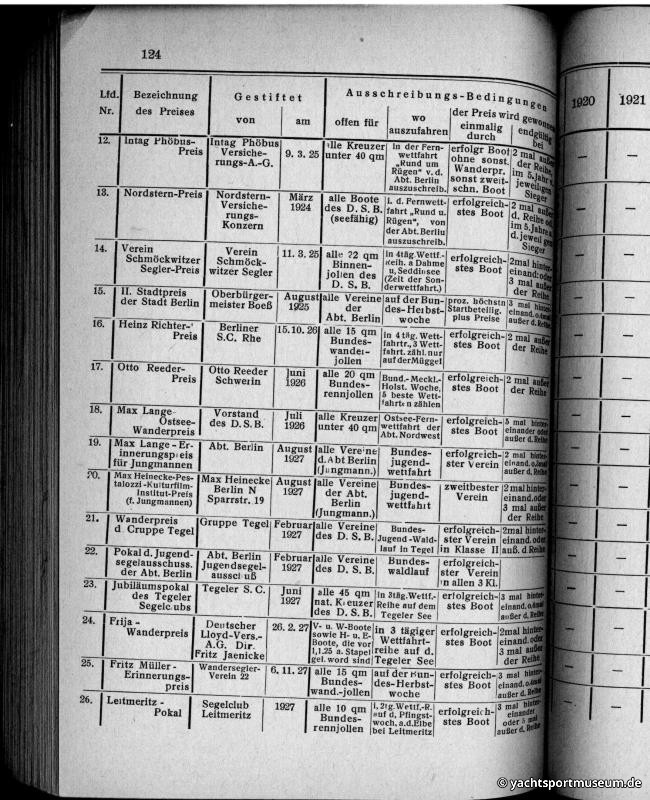 124
Lfd. Nr.
Bezeichnung des Preises
Gestiftet
von
am
Ausschreibungs-Bedingungen
offen für
wo auszufahren
der Preis wird gewonnen
einmalig durch
endgültig bei
1920
1921
12.
Intag Phöbus-
Preis
Intag Phöbus
Versiche-
rungs-A.-G.
9. 3. 25
alle Kreuzer
unter 40 qm
in der Fern-
wettfahrt
„Rund um
Rügen" v. d.
Abt. Berlin
auszuschreib.
erfolgr Boot
ohne sonst.
Wanderpr.
sonst zweit-
schn. Boot
2 mal außer
der Reihe,
im 5. Jahr v.
jeweiligen
Sieger
13.
Nordstern-Preis
Nordstern-
Versiche-
rungs-
Konzern
März
1924
alle Boote
des D. S. B.
(seefähig)
i. d. Fernwett-
fahrt „Rund u.
Rügen", von
der Abt. Berlin
auszuschreib.
erfolgreich-
stes Boot
2 mal außer
d. Reihe od.
im 5. Jahre a.
d. jeweil gen
Sieger
14.
Verein
Schmöckwitzer
Segler-Preis
Verein
Schmöck-
witzer Segler
11. 3. 25
alle 22 qm
Binnen-
jollen des
D. S. B.
in 4täg. Wettf.-
Reih. a Dahme
u. Seddinsee
(Zeit der Son-
derwettfahrt.)
erfolgreich-
stes Boot
2mal hinter-
einand. oder
3 mal außer
der Reihe
15.
II. Stadtpreis
der Stadt Berlin
Oberbürger-
meister Boeß
August
1925
alle Vereine
der
Abt. Berlin
auf der Bun-
des-Herbst-
woche
proz. höchste
Startbeteilig.
plus Preise
3 mal hinter-
einand. o. 5mal
außer d. Reihe
16.
Heinz Richter-
Preis
Berliner
S.C. Rhe
15.10. 26
alle 15 qm
Bundes-
wander-
jollen
in 4 täg. Wett-
fahrtr., 3 Wett-
fahrt. zähl. nur
auf der Müggel
erfolgreich-
stes Boot
2 mal außer
der Reihe
17.
Otto Reeder-
Preis
Otto Reeder
Schwerin
Juni
1926
alle 20 qm
Bundes-
rennjollen
Bund.- Meckl.-
Holst. Woche,
5 beste Wett-
fahrten zählen
erfolgreich-
stes Boot
2 mal außer
der Reihe
18.
Max Lange-
Ostsee-
Wanderpreis
Vorstand
des D. S. B.
Juli
1926
alle Kreuzer
unter 40 qm
Ostsee-Fern-
wettfahrt der
Abt. Nordwest
erfolgreich-
stes Boot
3 mal hinter-
einander oder
außer d. Reihe
19.
Max Lange - Er-
innerungspreis
für Jungmannen
Abt. Berlin
August
1927
alle Vereine
d. Abt Berlin
(Jungmann.)
Bundes-
jugend-
wettfahrt
erfolgreich-
ster Verein
2 mal hinter-
einand. o. 3mal
außer d. Reihe
20.
Max Heinecke-Pes-
talozzi-Kulturfilm-
Institut-Preis
(f. Jungmannen)
Max Heinecke
Berlin N
Sparrstr. 19
August
1927
alle Vereine
der Abt.
Berlin
(Jungmann.)
Bundes-
jugend-
wettfahrt
zweitbester
Verein
2 mal hinter-
einand. oder
3 mal außer
der Reihe
21.
Wanderpreis
d. Gruppe Tegel
Gruppe Tegel
Februar
1927
alle Vereine
des D. S. B.
Bundes-
Jugend-Wald-
lauf in Tegel
erfolgreich-
ster Verein
in Klasse II
2mal hinter-
einand. oder
auß. d. Reihe
22.
Pokal d. Jugend-
segelausschuss.
der Abt. Berlin
Abt. Berlin
Jugendsegel-
ausschuß
Februar
1927
alle Vereine
des D. S. B.
Bundes-
waldlauf
erfolgreich-
ster Verein
in allen 3 Kl.
23.
Jubiläumspokal
des Tegeler
Segelclubs
Tegeler S. C.
Juni
1927
alle 45 qm
nat. Kreuzer
des D. S. B.
in 3täg. Wettf.-
Reihe auf dem
Tegeler See
erfolgreich-
stes Boot
3 mal hinter-
einand. o. 4mal
außer d. Reihe
24.
Frija -
Wanderpreis
Deutscher
Lloyd-Vers.-
A.G. Dir.
Fritz Jaenicke
26. 2. 27
V- u. W-Boote
sowie H- u. E-
Boote, die vor
1.1.25 a. Stapel
gel. word sind
in 3 tägiger
Wettfahrt-
reihe auf d.
Tegeler See
erfolgreich-
stes Boot
2mal hinter-
einand. oder
3 mal außer
der Reihe
25.
Fritz Müller -
Erinnerungs-
preis
Wandersegler-
Verein 22
6. 11. 27
alle 15 qm
Bundes-
wand.-jollen
auf der Bun-
des-Herbst-
woche
erfolgreich-
stes Boot
3 mal hinter-
einand. o.
außer d. Reihe
26.
Leitmeritz -
Pokal
Segelclub
Leitmeritz
1927
alle 10 qm
Bundes-
rennjollen
i. 2tg. Wettf.-R.
auf d. Pfingst-
woch. a.d. Elbe
bei Leitmeritz
erfolgreich-
stes Boot
3 mal hinter-
einander
oder 5 mal
außer d. Reihe
© yachtsportmuseum.de